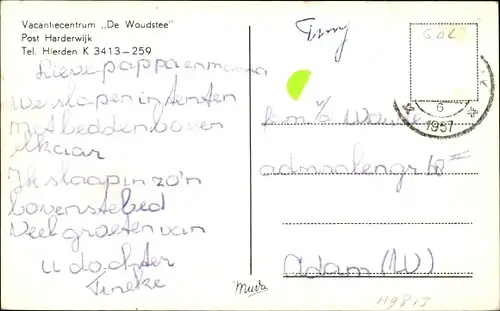 Vacantiecentrum „De Woudstee"
Post Harderwijk
Tel. Hierden K 3413-259
Lieve pappa en mama
We slapen in tenten
Met bedden boven
elkaar
Ik slaap in zo'n
bovenste bed
Veel groeten van
u dochter
Tineke
GDL
6
1957
fam v/d
admiralengr 68 III
Adam (W)